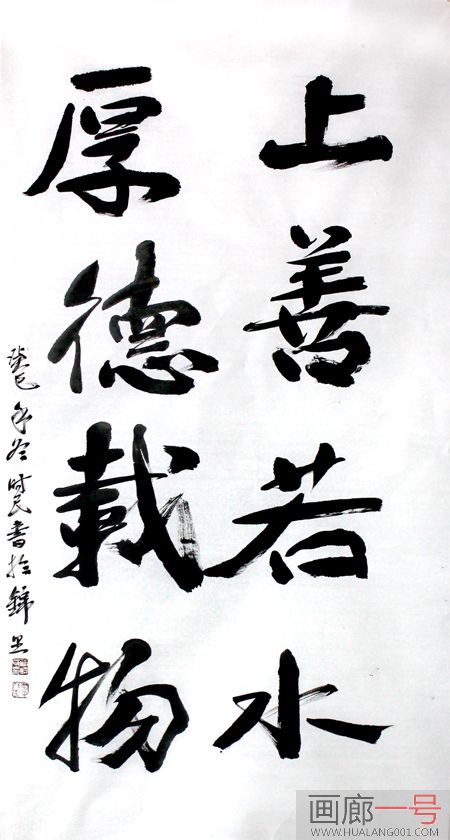 上善若水
厚德載物
癸巳年冬時民書於錦里
画廊一号
WWW.HUALANG001.COM